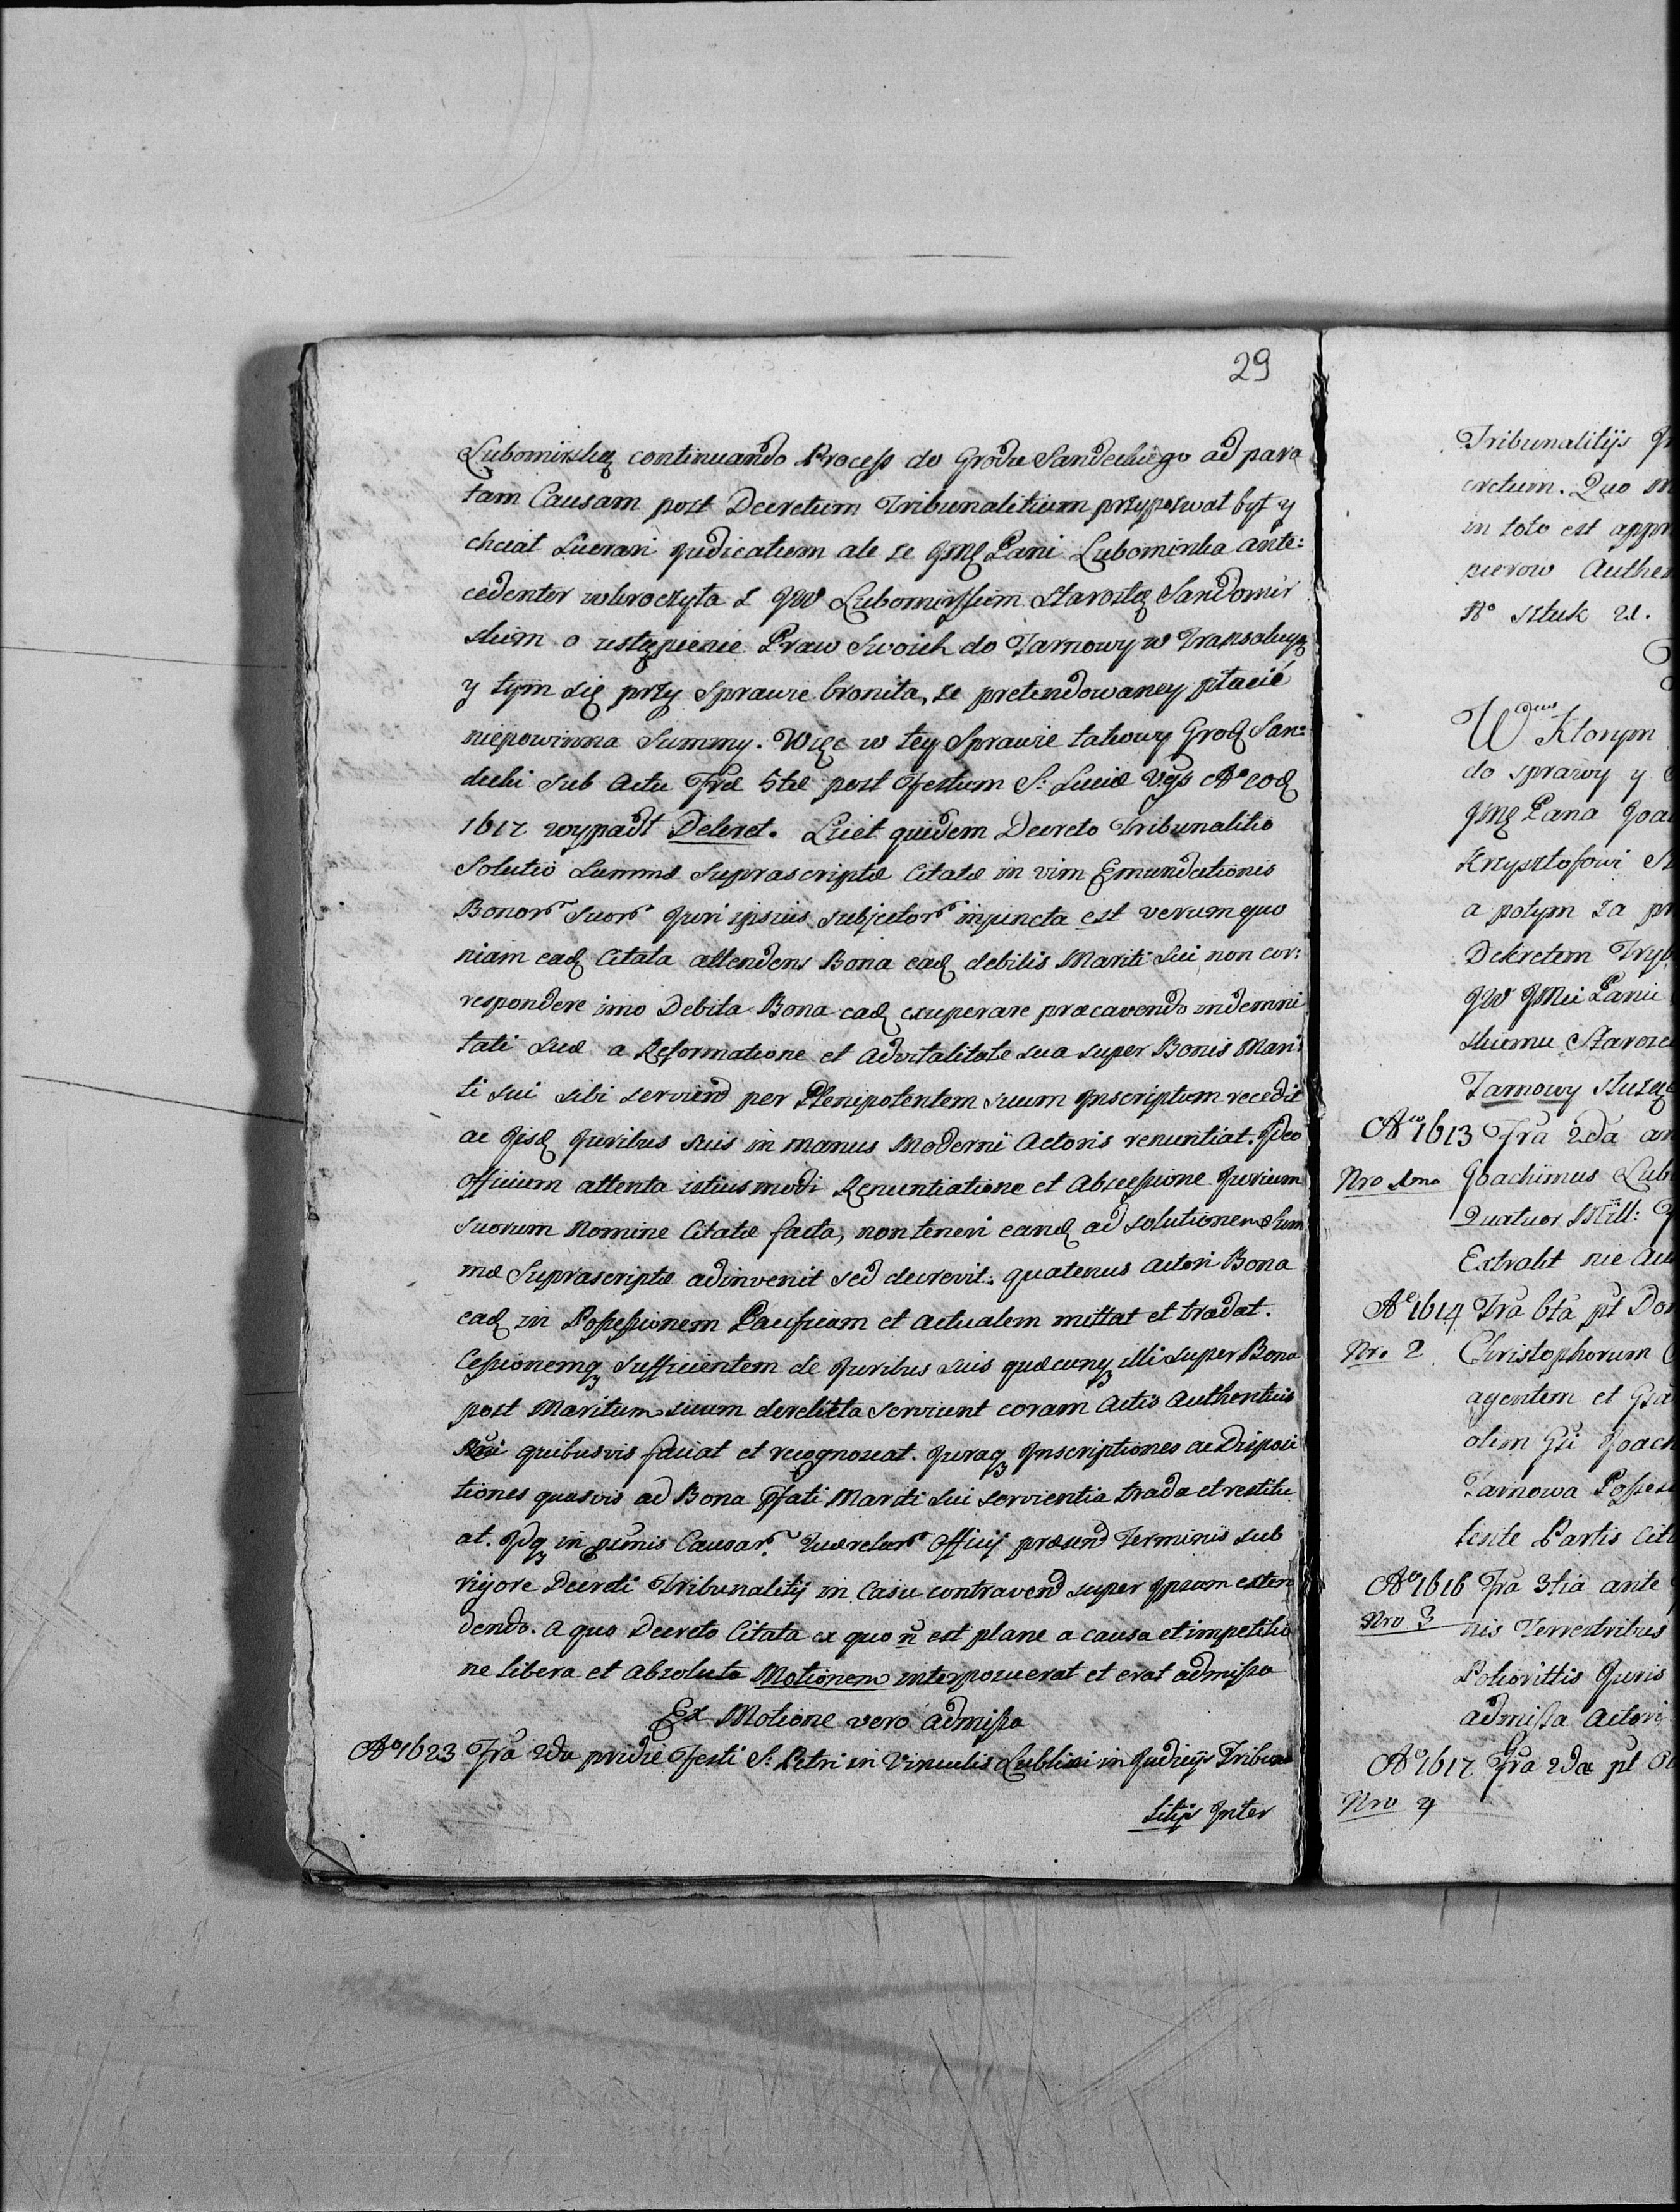 29
Lubomirską continuando Process do Grodu Sandeckiego ad para
tam Causam post Decretum Tribunalitium przypozwał był y
chciał Lucrari Judicatum ale że JMę Pani Lubomirska ante:
cedenter wkroczyła z JW Lubomirskiem Starostą Sandomir
skiem o ustąpienie Praw Swoich do Tarnowy w Tranzakcyą
y tym się przy Sprawie broniła, że pretendowaney płacić
niepowinna Summy. Więc w tey Sprawie takowy Grod San:
decki Sub Actu Fra 5tæ post Festum S: Luciæ Vgs Ao eod
1617 wypadł Dekret. Licet quidem Decreto Tribunalitio
Solutio Summæ Suprascriptæ Citatæ in vim Emundationis
Bonor Suor Juri ipsius subjector injuncta est verum quo
niam ead Citata attendens Bona ead debitis Mariti Sui non cor:
respondere imo Debita Bona ead exuperare præcavendo indemni
tati suæ a Reformatione et advitalitate sua super Bonis Mari:
ti sui sibi serviend per Plenipotentem suum Inscriptum recedit
ac Jisd Juribus suis in manus Moderni Actoris renuntiat. Ideo
Officium attenta istiusmodi Renuntiatione et Abscessione Jurium
suorum Nomine Citatæ facta, non teneri eand ad solutionem Sum
mæ Suprascriptæ adinvenit sed decrevit: quatenus actori Bona
ead in Possessionem Pacificam et actualem mittat et tradat.
Cessionemq sufficientem de Juribus suis quæcunq illi super Bona
post Maritum suum derelicta serviunt coram Actis Authenticis
quibusvis faciat et recognoscat. Juraq Inscriptiones ac Disposi
tiones quasvis ad Bona pfati Mariti Sui servientia trada et restitu
at. Idq in primis Causar Querelar Officij præsend Terminis sub
rigore Decreti Tribunalitij in Casu contravend super Ipsam exten
dendo. A quo Decreto Citata ex quo n est plane a causa et impetitio
ne libera et absoluta Motionem interposuerat et erat admissa
Ex Motione vero admissa
Ao 1623 Fra 2da pridie Festi S: Petri in Vinculis Lublini in Judicijs Tribuna
litijs Inter
Tribunalitijs
cretum. Quo
in toto est appr
pierow Authen
No sztuk 21.
W Ktorym
do sprawy y
JMę Pana Joa
Krzysztofowi
a potym za pr
Dekretem Tryb
JW JMci Panu
skiemu Staroś
Tarnowy służą
Ao 1613 Fra 2da an
Nro 1mo Joachimus Lub
Quatuor Mill:
Extrakt nie Au
Ao 1614 Fra 6ta pt Do
Nro 2 Christophorum
agentem et Gra
olim Gsi Joach
Tarnowa Posses
lente Partis Cit
Ao 1616 Fra 3tia ante
Nro 3 nis Terrestribus
Potiorittis Juris
admissa Actori
Ao 1617 Fra 2da pt
Nro 4